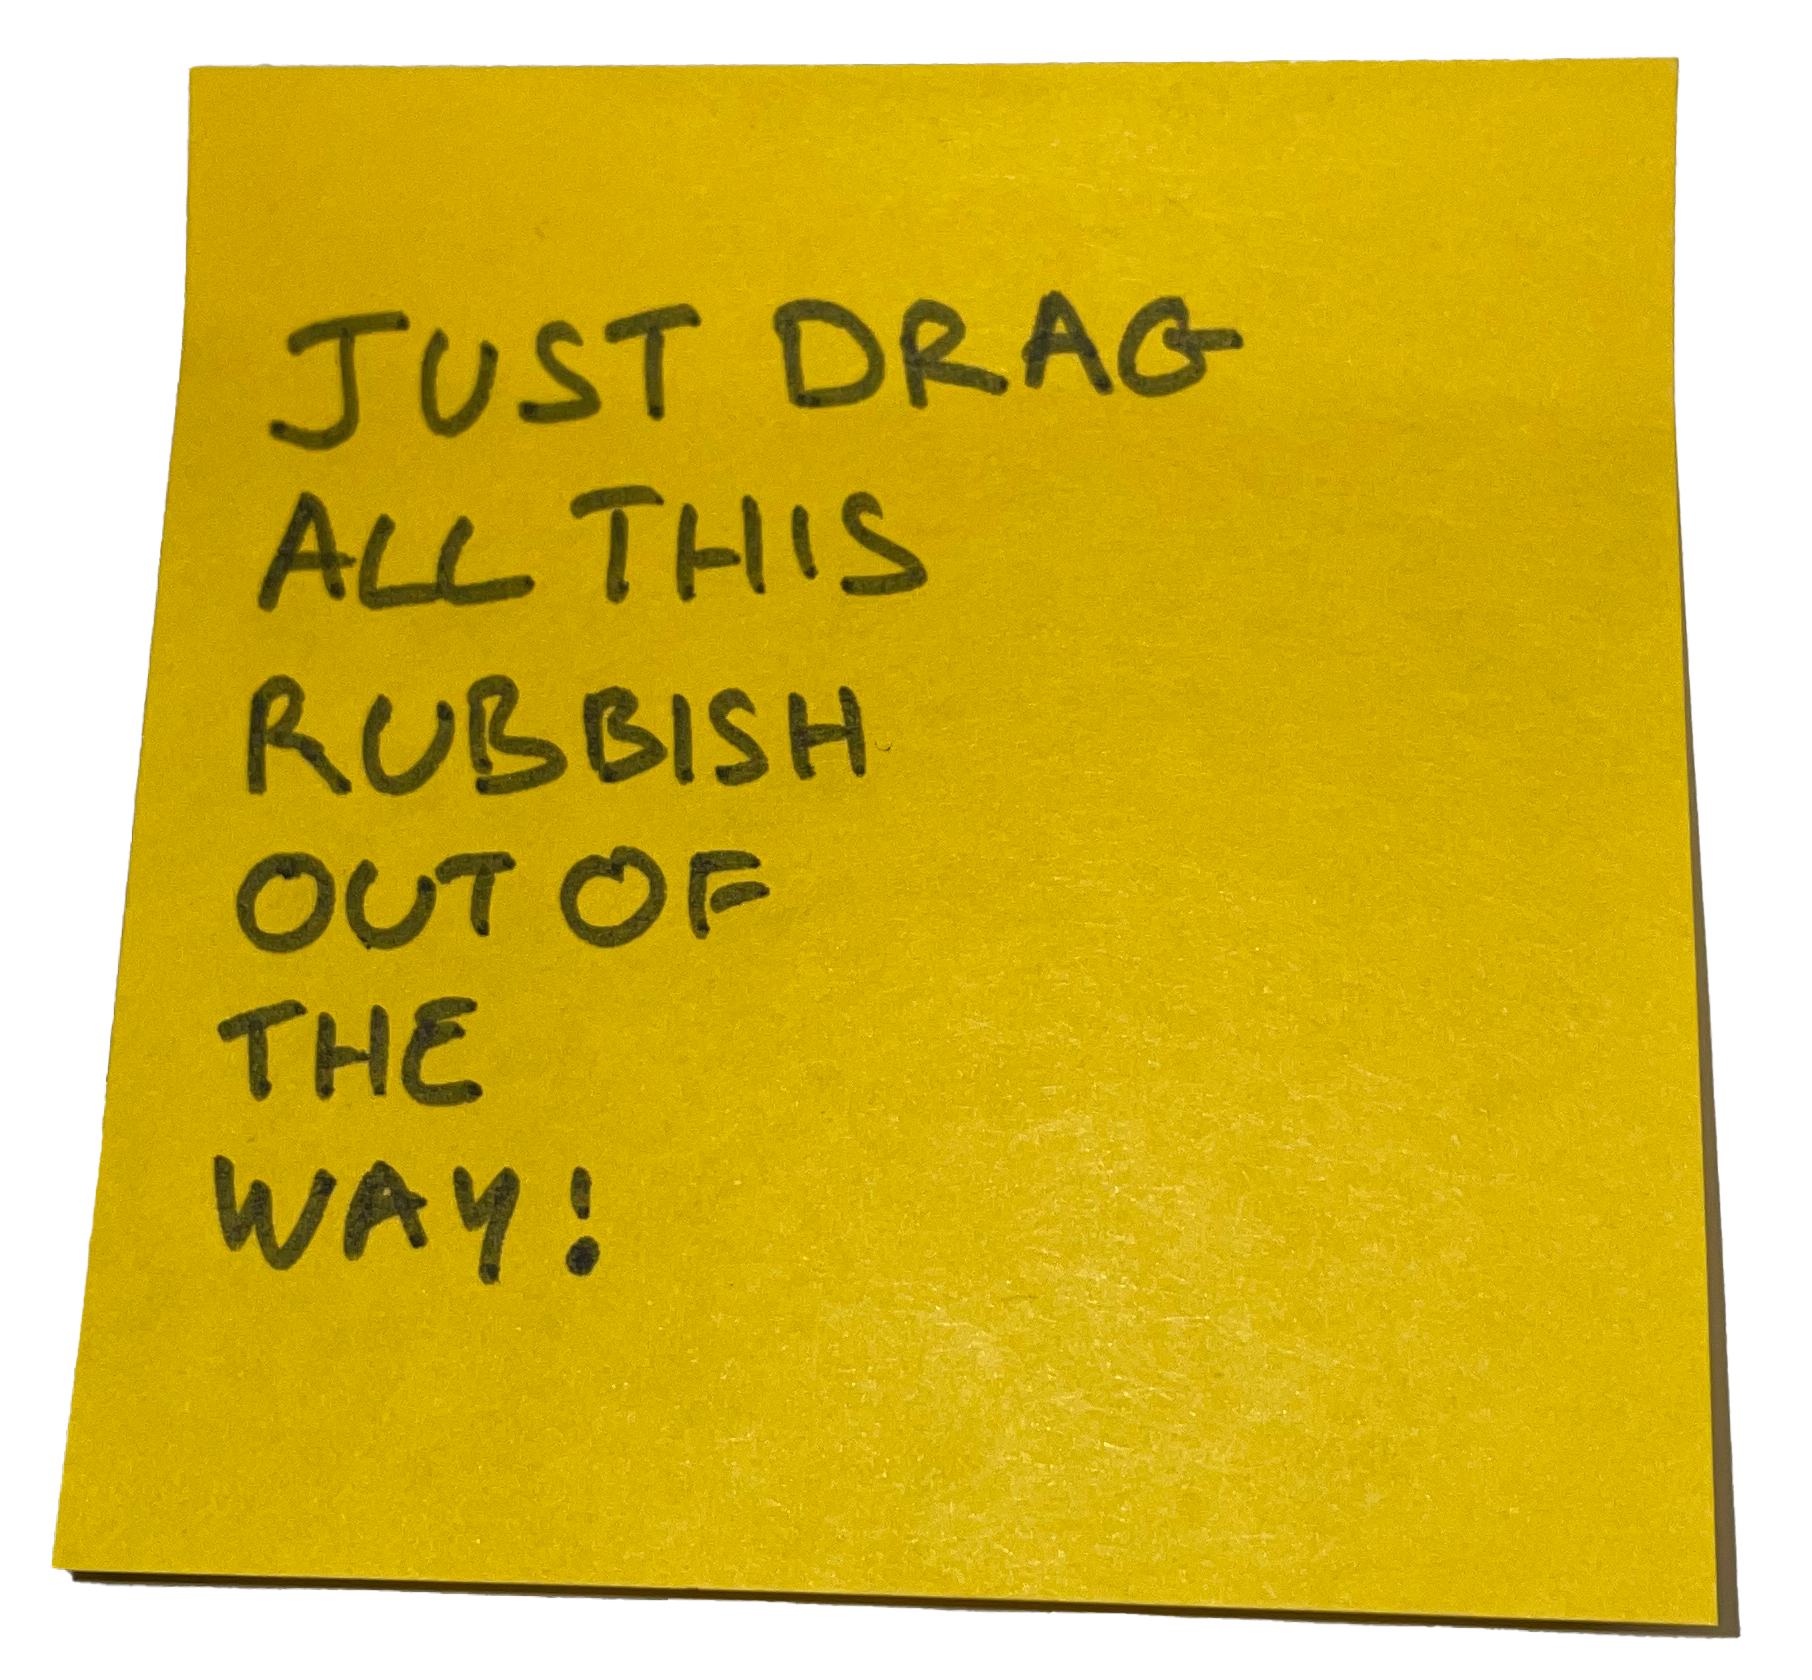 JUST DRAG
ALL THIS
RUBBISH
OUT OF
THE
WAY!